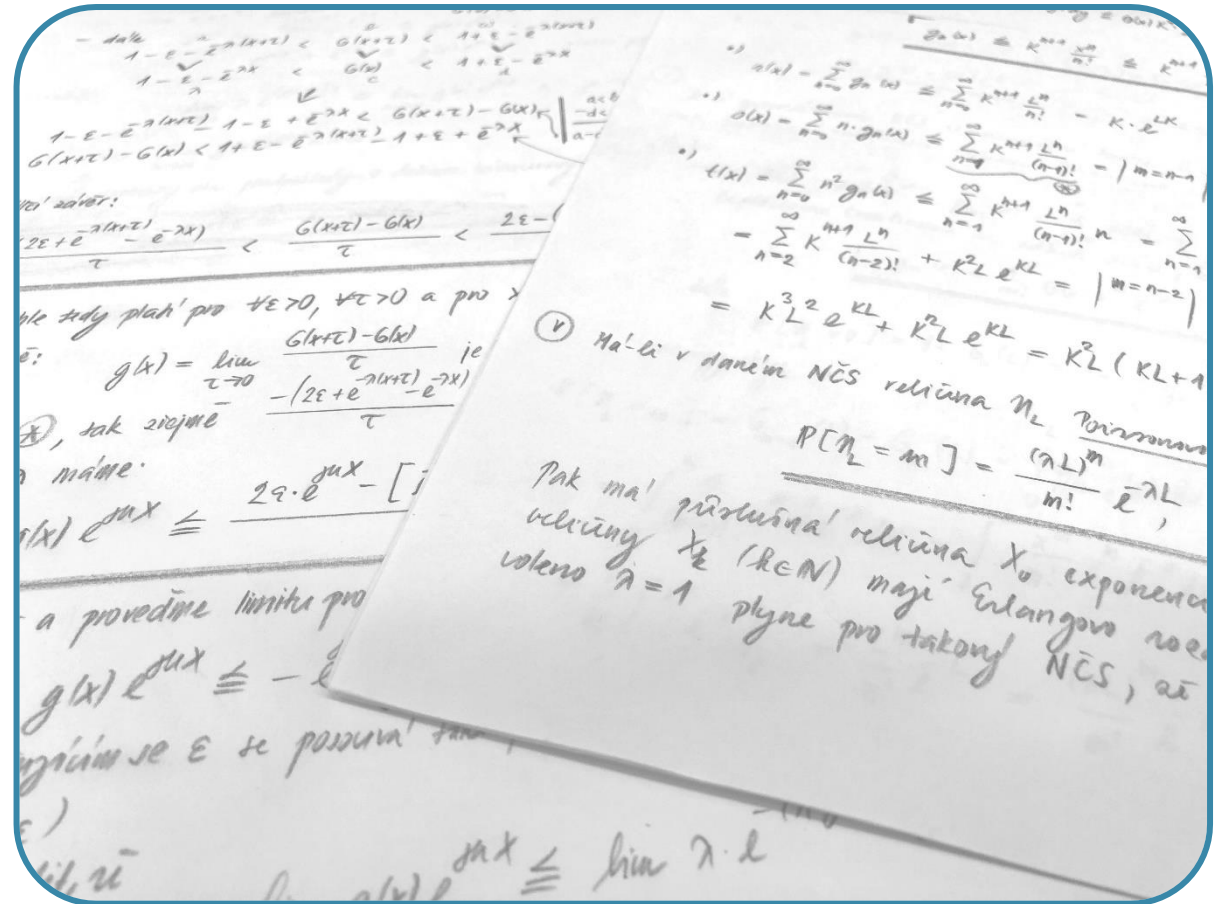 - dále
1-ε-e^{-λ(x+τ)} < G(x+τ) < 1+ε-e^{-λ(x+τ)}
1-ε-e^{-λx} < G(x) < 1+ε-e^{-λx}
1-ε-e^{-λ(x+τ)}-1-ε+e^{-λx} < G(x+τ)-G(x)
G(x+τ)-G(x) < 1+ε-e^{-λ(x+τ)}-1+ε+e^{-λx}
závěr:
(2ε+e^{-λ(x+τ)}-e^{-λx})/τ < (G(x+τ)-G(x))/τ < 2ε-(
tedy platí pro ∀ε>0, ∀τ>0 a pro
g(x) = lim_{τ→0} (G(x+τ)-G(x))/τ je
, tak zřejmě -(2ε+e^{-λ(x+τ)}-e^{-λx})/τ
máme:
(x) e^{μx} ≦ 2ε·e^{μx} - [
a proveďme limitu pro
g(x) e^{μx} ≦ -
se ε se posouvá
e^{μx} ≦ lim λ·e
g_n(x) ≤ K^{n+1} x^n/n! ≤ K^{n+1}
•) z(x) = Σ_{n=0}^∞ g_n(x) ≤ Σ_{n=0}^∞ K^{n+1} L^n/n! = K·e^{LK}
•) o(x) = Σ_{n=0}^∞ n·g_n(x) ≤ Σ_{n=1}^∞ K^{n+1} L^n/(n-1)! = | m=n-1 |
•) t(x) = Σ_{n=0}^∞ n² g_n(x) ≤ Σ_{n=1}^∞ K^{n+1} L^n/(n-1)! n = Σ_{n=1}^∞
= Σ_{n=2}^∞ K^{n+1} L^n/(n-2)! + K²L e^{KL} = | m=n-2 |
= K³L² e^{KL} + K²L e^{KL} = K²L (KL+1
Ⓥ Má-li v daném NČS veličina n_L Poissonovo
P[n_L = m] = (λL)^m/m! e^{-λL},
Pak má příslušná veličina X_0 exponenc
veličiny X_k (k∈N) mají Erlangovo roz
voleno λ=1 plyne pro takový NČS, že